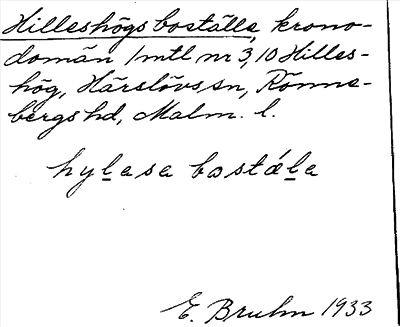 Hilleshögs boställe, krono-
domän 1 mtl nr 3, 10 Hilles-
hög, Härslövs sn, Rönne-
bergs hd, Malm. l.
hylasa bostäla
E. Bruhn 1933